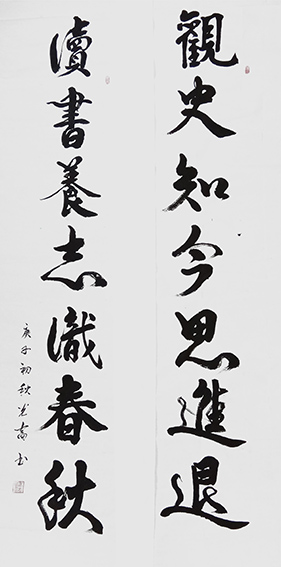 觀史知今思進退
讀書養志識春秋
庚子初秋